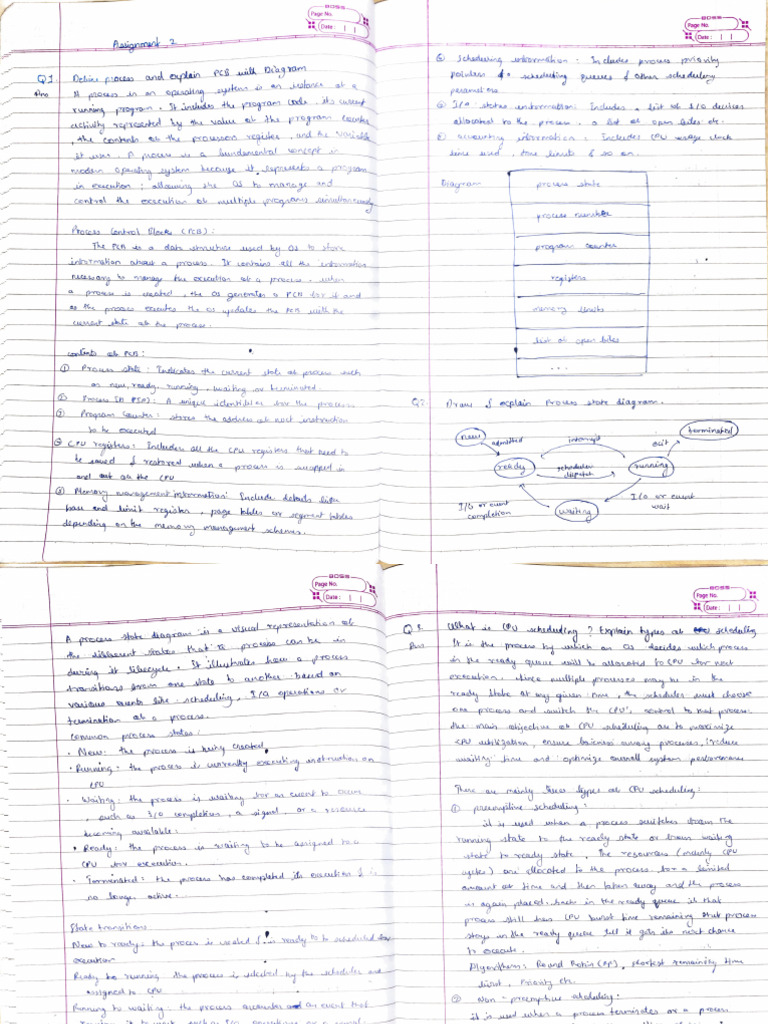 BOSS
Page No.
Date : | |
Assignment 2
Q1. Define process and explain PCB with Diagram
Ans A process in an operating system is an instance of a
running program. It includes the program code, its current
activity represented by the value of the program counter
, the contents of the processor register, and the variable
it uses. A process is a fundamental concept in
modern operating system because it represents a program
in execution ; allowing the OS to manage and
control the execution of multiple programs simultaneously
Process Control Block (PCB) :
The PCB is a data structure used by OS to store
information about a process. It contains all the information
necessary to manage the execution of a process. when
a process is created, the OS generates a PCB for it and
as the process executes the OS updates the PCB with the
current state of the process.
contents of PCB :
① Process state : Indicates the current state of process such
as new, ready, running, waiting or terminated.
Process ID (PID) : A unique identifier for the process
Program Counter : stores the address of next instruction
to be executed
CPU registers : Includes all the CPU registers that need to
be saved & restored when a process is swapped in
and out of the CPU
Memory management information : Include details like
base and limit register, page tables or segment tables
depending on the memory management schemes.
BOSS
Page No.
Date : | |
⑥ Scheduling information : Includes process priority
pointers scheduling queues & other scheduling
parameters.
I/O status information : Includes a list of I/O devices
allocated to the process, a list of open files etc.
accounting information : Includes CPU usage, clock
time used, time limits & so on.
Diagram
process state
process number
program counter
registers
memory limits
list of open files
....
Q2. Draw & explain Process state diagram.
new
admitted
interrupt
exit
terminated
ready
scheduler
dispatch
running
I/O or event
completion
waiting
I/O or event
wait
BOSS
Page No.
Date : | |
A process state diagram is a visual representation of
the different states that a process can be in
during it lifecycle. It illustrates how a process
transitions from one state to another based on
various events like scheduling, I/O operations or
termination of a process.
Common process states :
· New : the process is being created
· Running : the process is currently executing instruction on
CPU
· Waiting : the process is waiting for an event to occur
, such as I/O completion, a signal, or a resource
becoming available.
· Ready : the process is waiting to be assigned to a
CPU for execution.
· Terminated : the process has completed its execution & is
no longer active.
State transitions
New to ready : the process is created & is ready to scheduled for
execution
Ready to running the process is selected by the scheduler and
assigned to CPU
Running to waiting : the process encounter an event that
BOSS
Page No.
Date : | |
Q3. What is CPU scheduling ? Explain types of scheduling
Ans It is the process by which an OS decides which process
in the ready queue will be allocated to CPU for next
execution. Since multiple processes may be in the
ready state at any given time, the scheduler must choose
one process and switch the CPU's control to that process.
the main objective of CPU scheduling are to maximize
CPU utilization, ensure fairness among processes, reduce
waiting time and optimize overall system performance
There are mainly types of CPU scheduling :
① preemptive scheduling :
it is used when a process switches from the
running state to the ready state or from waiting
state to ready state. The resources (mainly CPU
cycles) are allocated to the process for a limited
amount of time and then taken away and the process
is again placed back in the ready queue if that
process still has CPU burst time remaining that process
stays in the ready queue till it gets its next chance
to execute.
Algorithms : Round Robin (RR), shortest remaining time
first, Priority etc.
② Non-preemptive scheduling :
it is used when a process terminates or a process